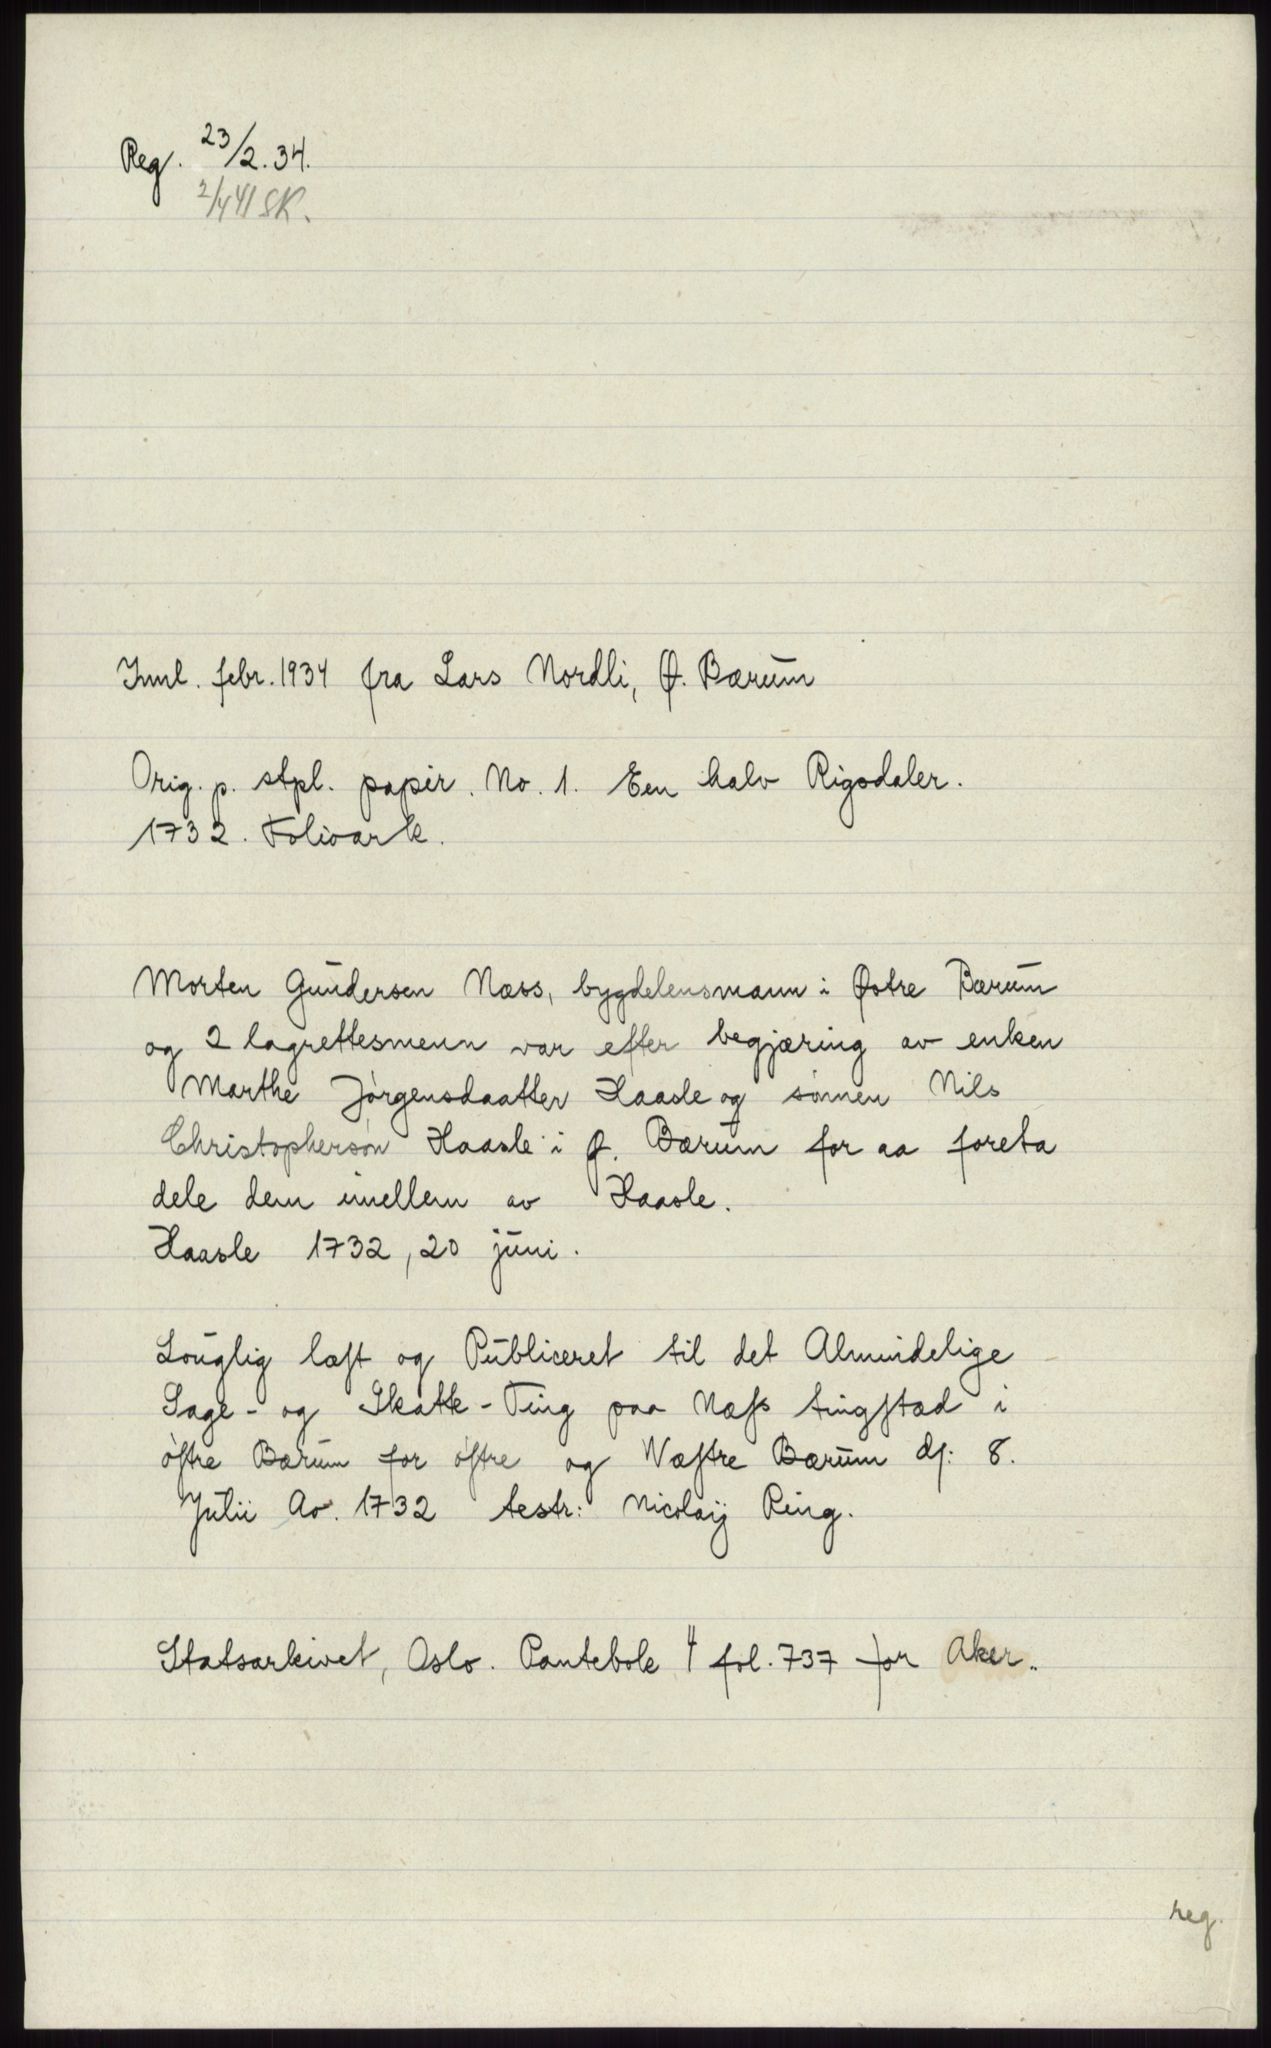 Reg. 23/2.34.
2/4 41 SK.
Innl. febr. 1934 fra Lars Nordli, Ø. Bærum
Orig. p. stpl. papir. No. 1. Een halv Rigsdaler.
1732. Folioark.
Morten Gundersen Næss, bygdelensmann i Østre Bærum
og 2 lagrettesmenn var efter begjæring av enken
Marthe Jørgensdaatter Haasle og sønnen Nils
Christophersøn Haasle i Ø. Bærum for aa foreta
dele dem imellem av Haasle.
Haasle 1732, 20 juni.
Louglig læst og Publiceret til det Almindelige
Sage- og Skatte-Ting paa Næss tingstad i
østre Bærum for østre og Wæstre Bærum ds: 8.
Julii Ao. 1732 testr: Nicolaij Ring.
Statsarkivet, Oslo. Pantebok 4 fol. 737 for Aker.
reg.